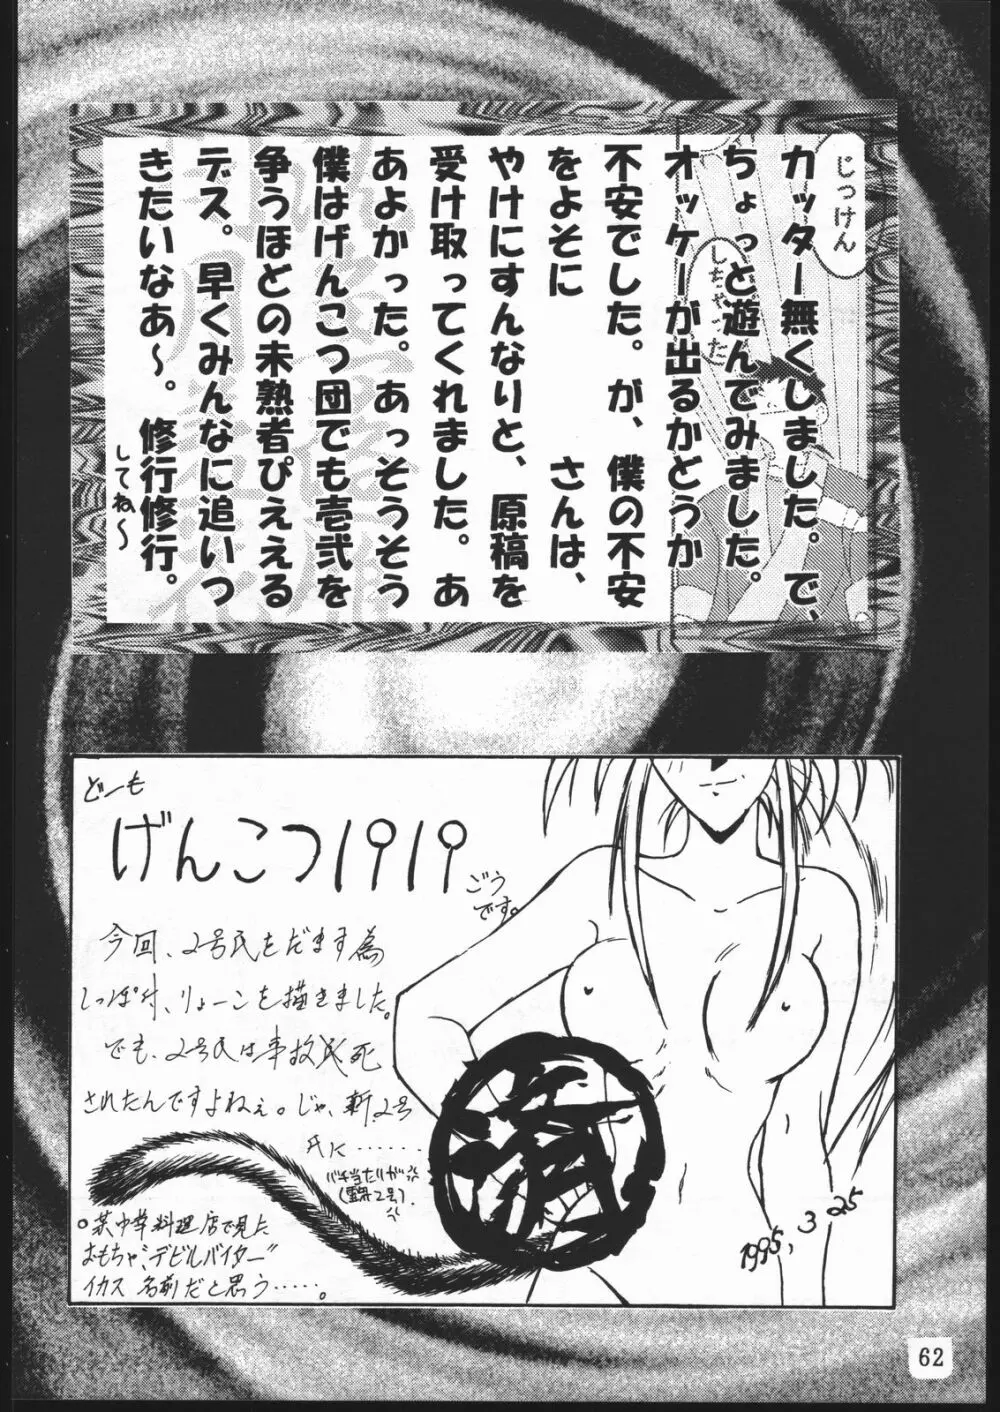 じっけん
しちゃった
カッター無くしました。で、
ちょっと遊んでみました。
オッケーが出るかどうか
不安でした。が、僕の不安
をよそに　　　さんは、
やけにすんなりと、原稿を
受け取ってくれました。あ
あよかった。あっそうそう
僕はげんこつ団でも壱弐を
争うほどの未熟者ぴええる
デス。早くみんなに追いつ
きたいなあ〜。修行修行。
してね〜
どーも
げんこつ1919
ごう
です。
今回、2号氏をだます為
しっぽ付、りょーこを描きました。
でも、2号氏は事故死
されたんですよねぇ。じゃ、新2号
氏に……
バチ当たりが
(霊界2号).
。某中華料理店で見た
おもちゃ“デビルバイター”
イカス名前だと思う……。
1995,3 25
62